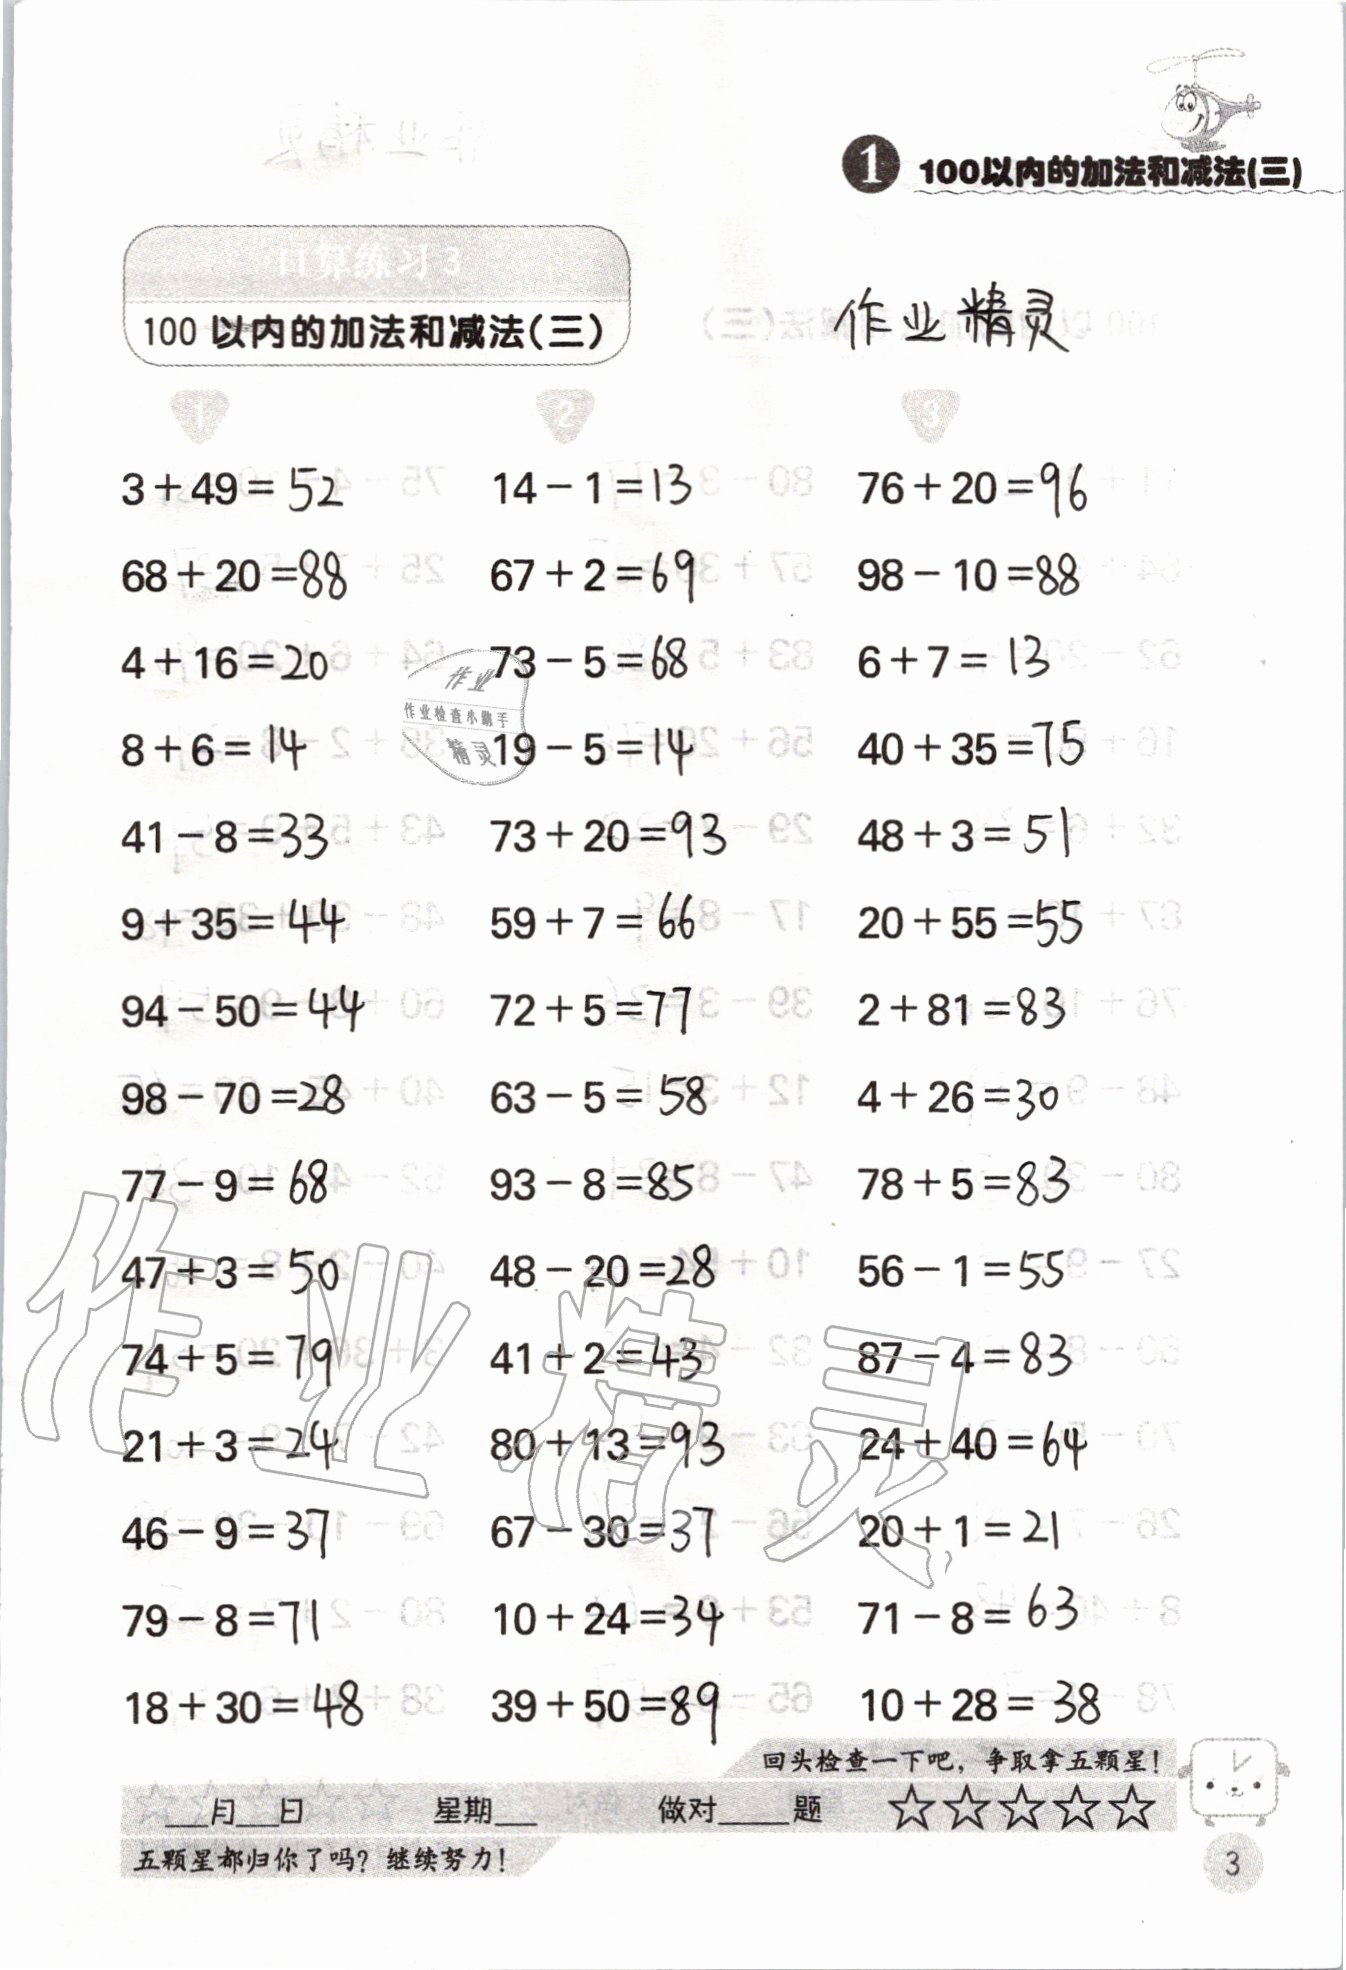 1 100以内的加法和减法(三)
口算练习3
100 以内的加法和减法(三)
作业精灵
1 2 3
3+49=52 14-1=13 76+20=96
68+20=88 67+2=69 98-10=88
4+16=20 73-5=68 6+7=13
作业
作业检查小帮手
精灵
8+6=14 19-5=14 40+35=75
41-8=33 73+20=93 48+3=51
9+35=44 59+7=66 20+55=55
94-50=44 72+5=77 2+81=83
98-70=28 63-5=58 4+26=30
77-9=68 93-8=85 78+5=83
47+3=50 48-20=28 56-1=55
作业精灵
74+5=79 41+2=43 87-4=83
21+3=24 80+13=93 24+40=64
46-9=37 67-30=37 20+1=21
79-8=71 10+24=34 71-8=63
18+30=48 39+50=89 10+28=38
回头检查一下吧，争取拿五颗星！
___月___日 星期___ 做对_____题 ☆☆☆☆☆
五颗星都归你了吗？继续努力！
3